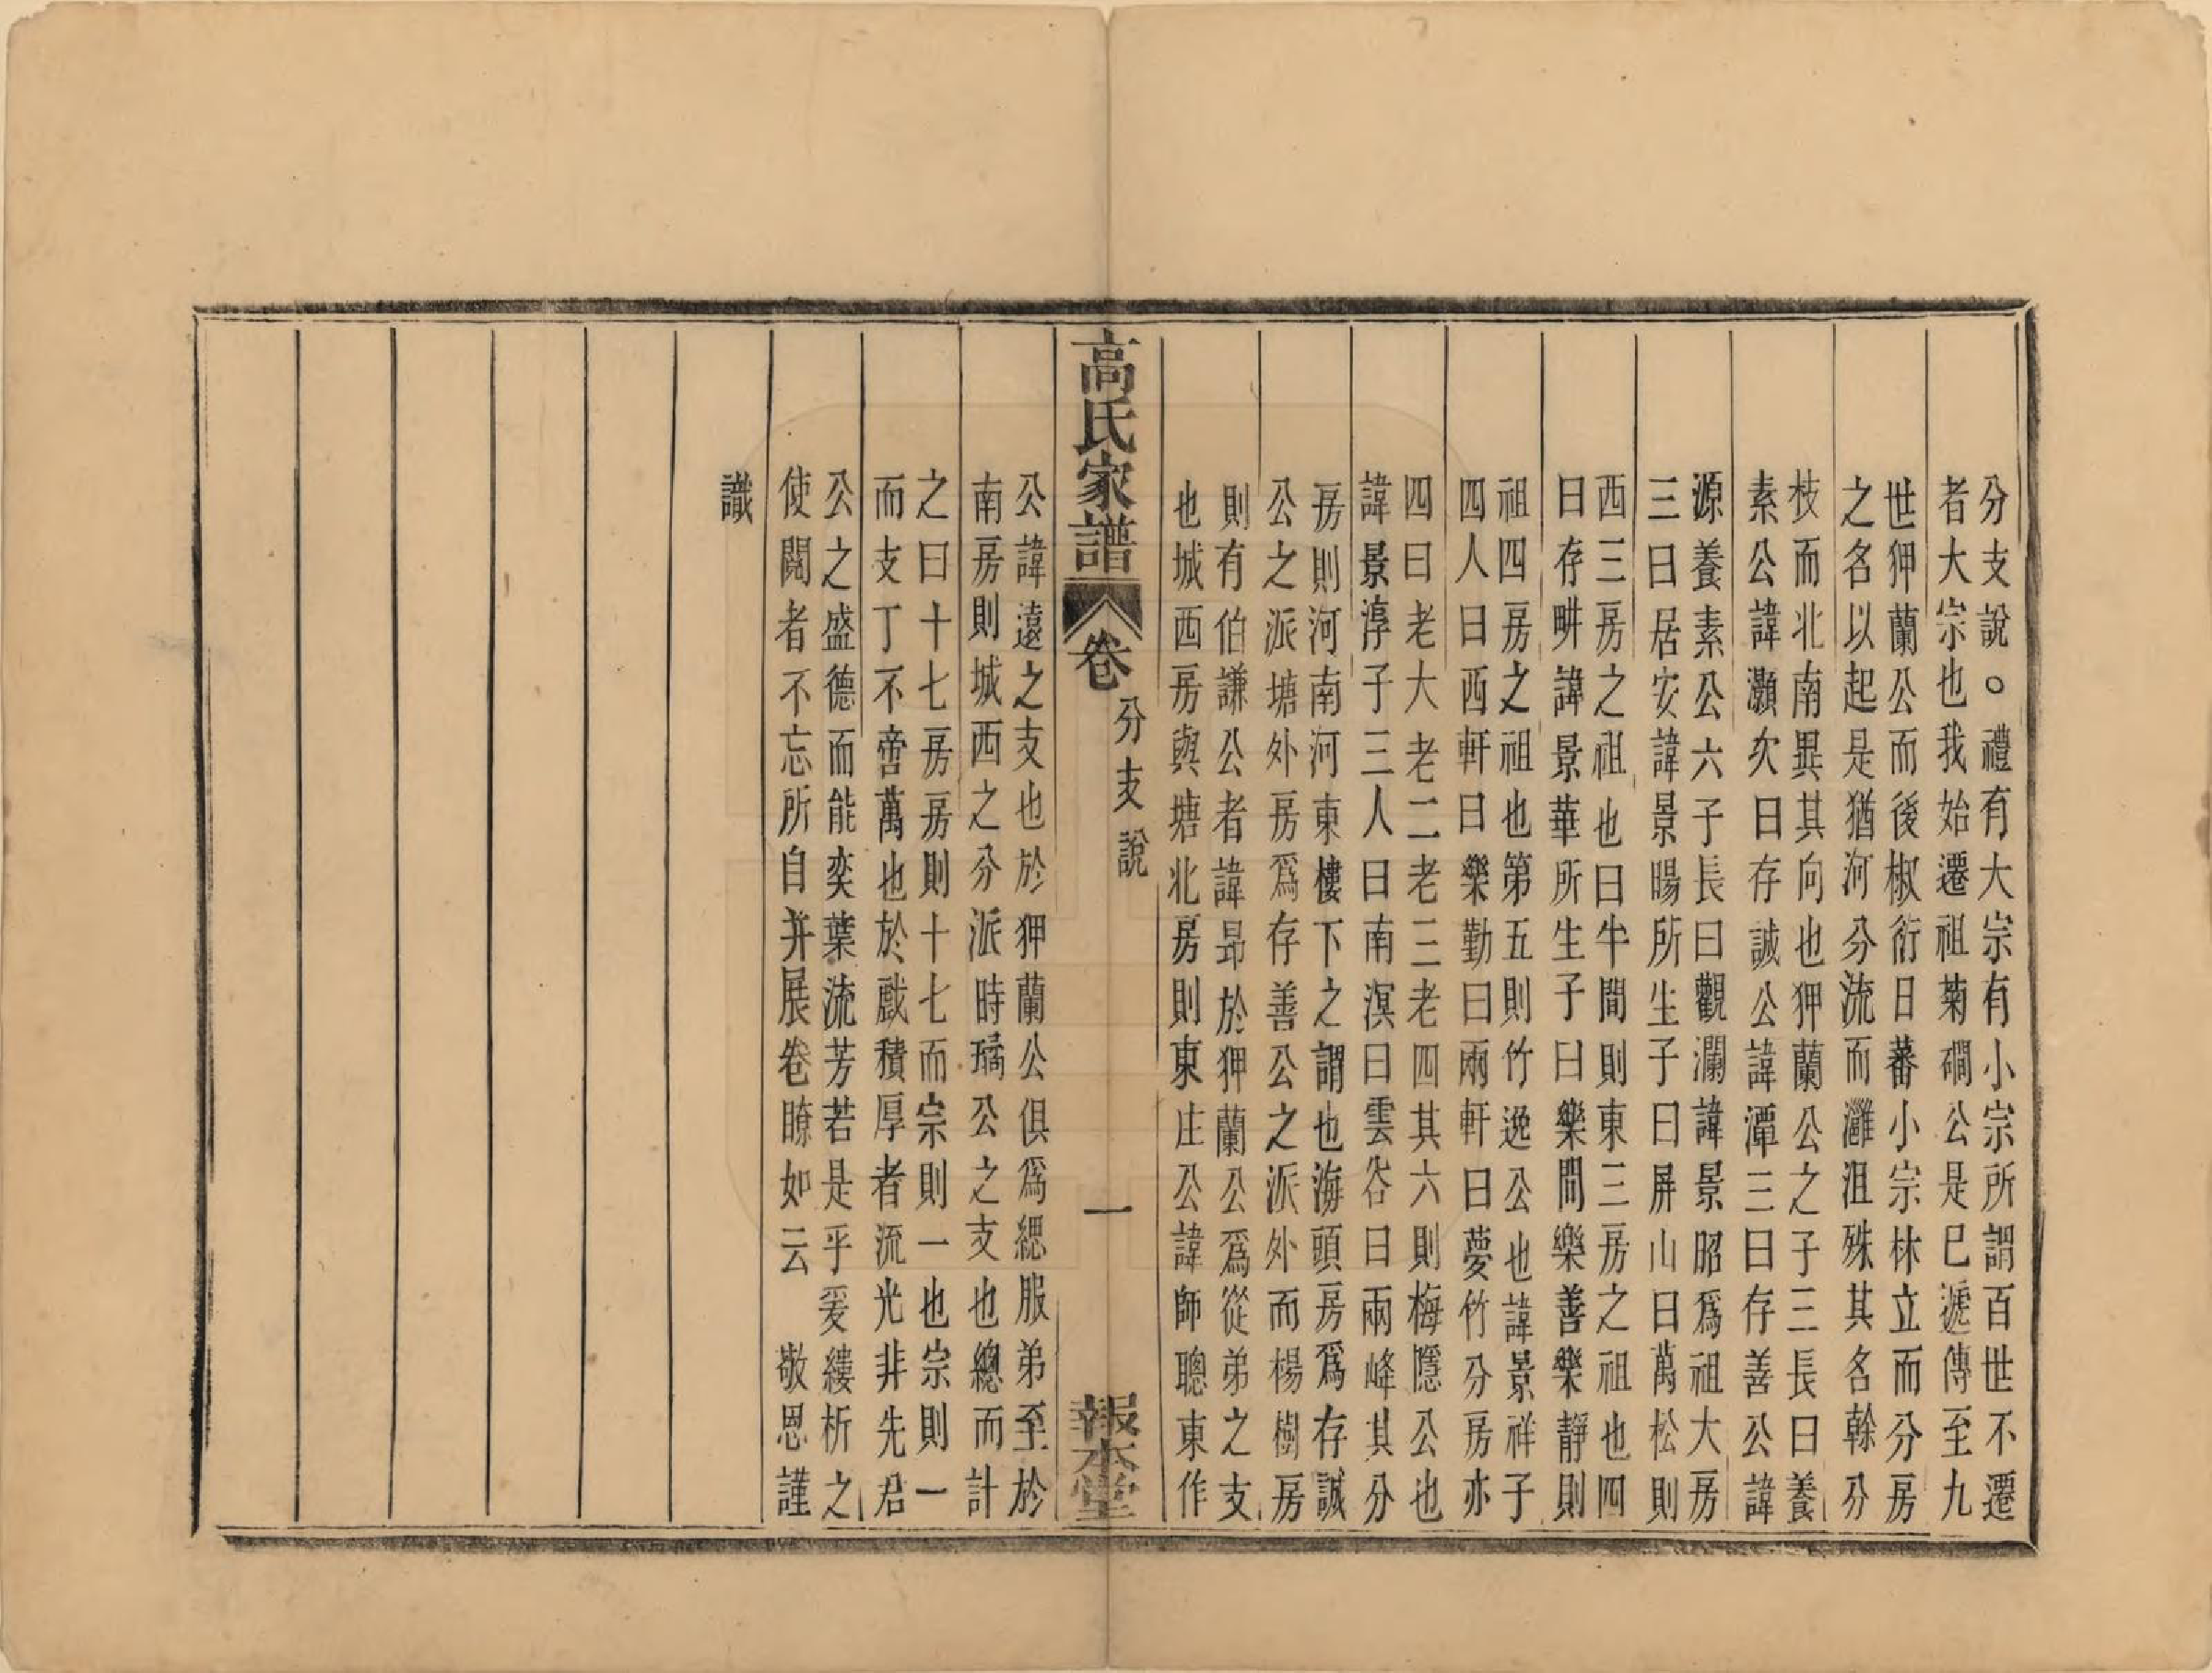 分支說。禮有大宗有小宗所謂百世不遷
者大宗也我始遷祖菊磵公是已遞傳至九
世狎蘭公而後椒衍日蕃小宗林立而分房
之名以起是猶河分流而灉沮殊其名榦分
枝而北南異其向也狎蘭公之子三長曰養
素公諱灝次曰存誠公諱潭三曰存善公諱
源養素公六子長曰觀瀾諱景昭爲祖大房
三曰居安諱景暘所生子曰屏山曰萬松則
西三房之祖也曰牛間則東三房之祖也四
曰存畊諱景華所生子曰樂間樂善樂靜則
祖四房之祖也第五則竹逸公也諱景祥子
四人曰西軒曰樂勤曰兩軒曰夢竹分房亦
四曰老大老二老三老四其六則梅隱公也
諱景淳子三人曰南溟曰雲谷曰兩峰其分
房則河南南河東樓下之謂也海頭房爲存誠
公之派塘外房爲存善公之派外而楊樹房
則有伯謙公者諱昻於狎蘭公爲從弟之支
也城西房與塘北房則東庄公諱師聰東作
高氏家譜
卷
分支說
一
報本堂
公諱遠之支也於狎蘭公俱爲緦服弟至於
南房則城西之分派時璚公之支也總而計
之曰十七房房則十七而宗則一也宗則一
而支丁不啻萬也於戲積厚者流光非先君
公之盛德而能奕葉流芳若是乎爰縷析之
使閱者不忘所自并展卷瞭如云 敬恩謹
識